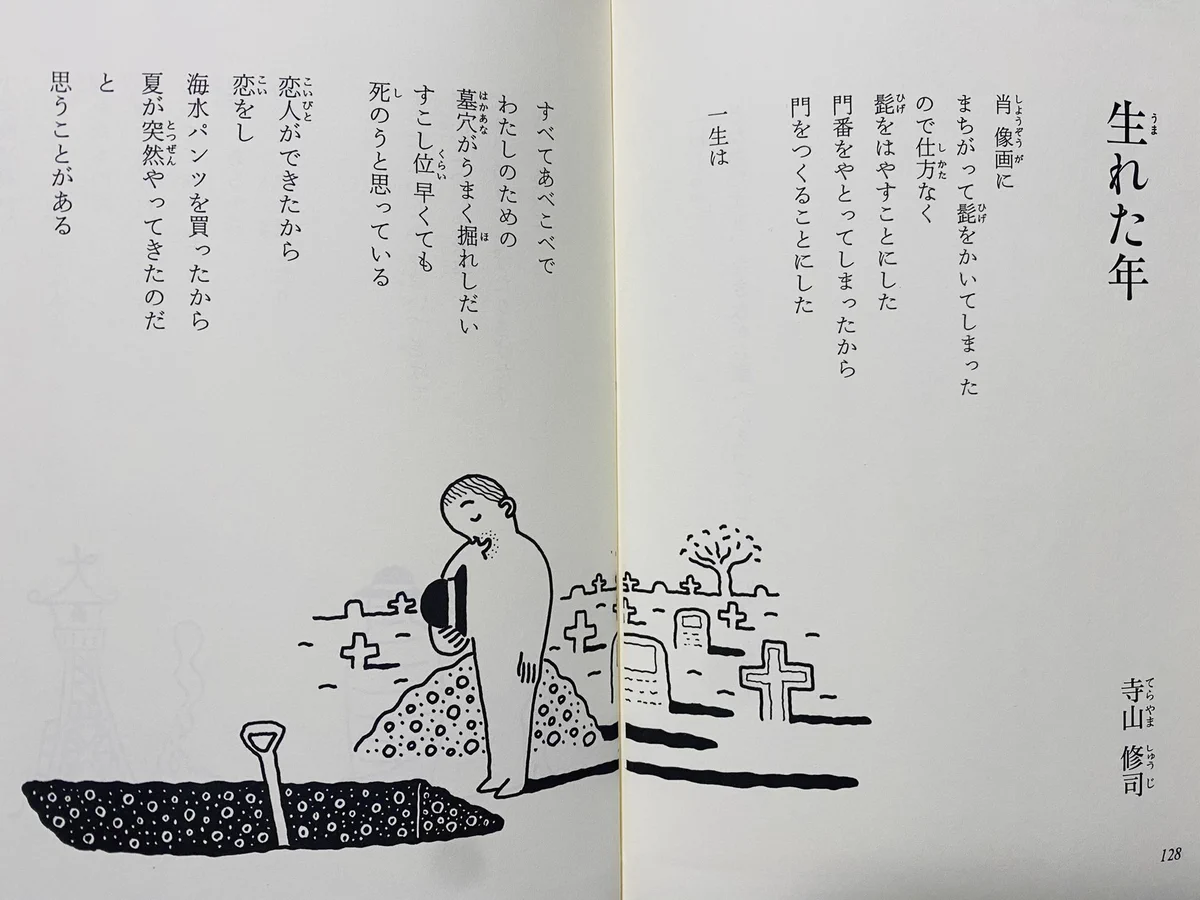 生れた年
寺山 修司
肖像画に
まちがって髭をかいてしまった
ので仕方なく
髭をはやすことにした
門番をやとってしまったから
門をつくることにした
一生は
すべてあべこべで
わたしのための
墓穴がうまく掘れしだい
すこし位早くても
死のうと思っている
恋人ができたから
恋をし
海水パンツを買ったから
夏が突然やってきたのだ
と
思うことがある
128